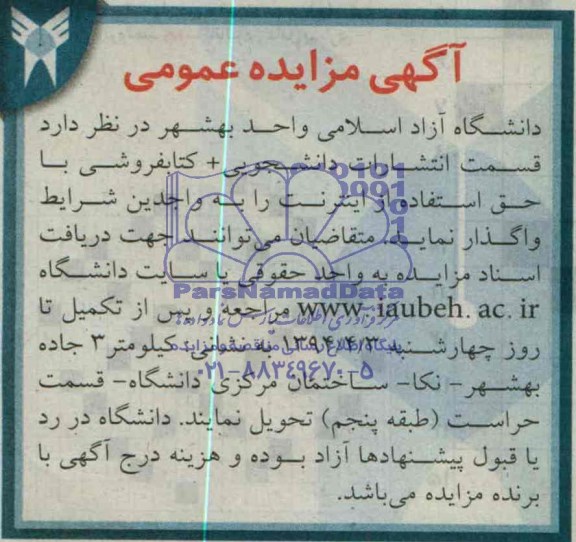 آگهی مزایده عمومی
دانشگاه آزاد اسلامی واحد بهشهر در نظر دارد
قسمت انتشارات دانشجویی+ کتابفروشی با
حق استفاده از اینترنت را به واجدین شرایط
واگذار نماید. متقاضیان می‌توانند جهت دریافت
اسناد مزایده به واحد حقوقی یا سایت دانشگاه
www.iaubeh.ac.ir مراجعه و پس از تکمیل تا
روز چهارشنبه ۱۳۹۴/۴/۳ به نشانی: کیلومتر ۳ جاده
بهشهر- نکا- ساختمان مرکزی دانشگاه- قسمت
حراست (طبقه پنجم) تحویل نمایند. دانشگاه در رد
یا قبول پیشنهادها آزاد بوده و هزینه درج آگهی با
برنده مزایده می‌باشد.
ParsNamadData
۰۲۱-۸۸۳۴۹۶۷۰-۵